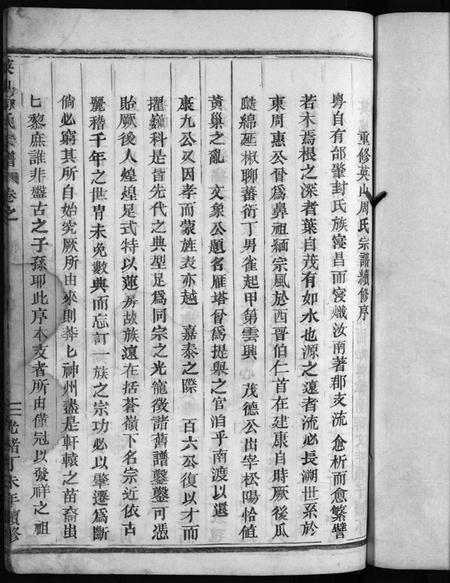 重修英山周氏宗譜續修序
粵自有邰肇封氏族寖昌而寖熾汝南著郡支流愈析而愈繁譬
若木焉根之深者葉自茂有如水也源之遠者流必長溯世系於
東周惠公晉為鼻祖緬宗風於西晉伯仁首在建康自時厥後瓜
瓞綿延椒聊蕃衍丁男雀起甲第雲興 茂德公出宰松陽恰值
黃巢之亂 文象公題名雁塔晉為提舉之官洎乎南渡以還
康九公又因孝而蒙旌表亦越 嘉泰之際 百六公復以才而
擢巍科是皆先代之典型足為同宗之光寵徵諸舊譜鑿鑿可憑
貽厥後人煌煌足式特以蓮房故族遠在括蒼嶺下名宗近依古
麗稽千年之世冑未免數典而忘訂一族之宗功必以肇遷為斷
倘必窮其所自始究厥所由來則莽匕神州盡是軒轅之苗裔蚩
匕黎庶誰非盤古之子孫耶此序本支者所由僅冠以發祥之祖
氏宗譜 卷之一
光緒丁未年續修